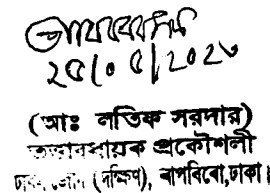 ২৫/০৫/২০২৩
(মোঃ লতিফ সরদার)
তত্ত্বাবধায়ক প্রকৌশলী
ঢাকা জোন (দক্ষিণ), বাপবিবো, ঢাকা।